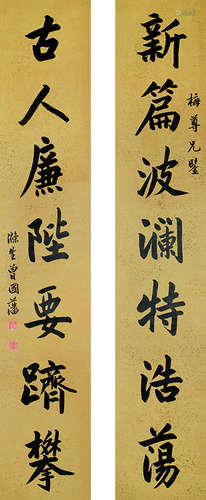 新篇波瀾特浩蕩
梅尊兄鑒
古人廉陛要躋攀
滌生曾國藩